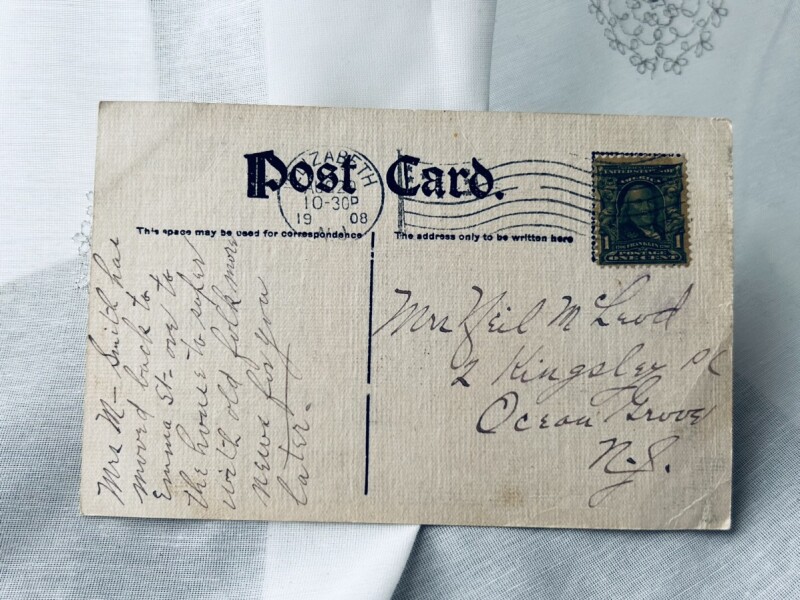 Post Card.
ZABETH
10-30P
19 08
N.J.
This space may be used for correspondence
The address only to be written here
UNITED STATES OF
FRANKLIN
1 1
POSTAGE
ONE CENT
Mrs M- Smith has
moved back to
Emma St- ove to
the house to super
with old folk more
news for you
later.
Mrs Neil McLeod
2 Kingsley Pl
Ocean Grove
N.J.